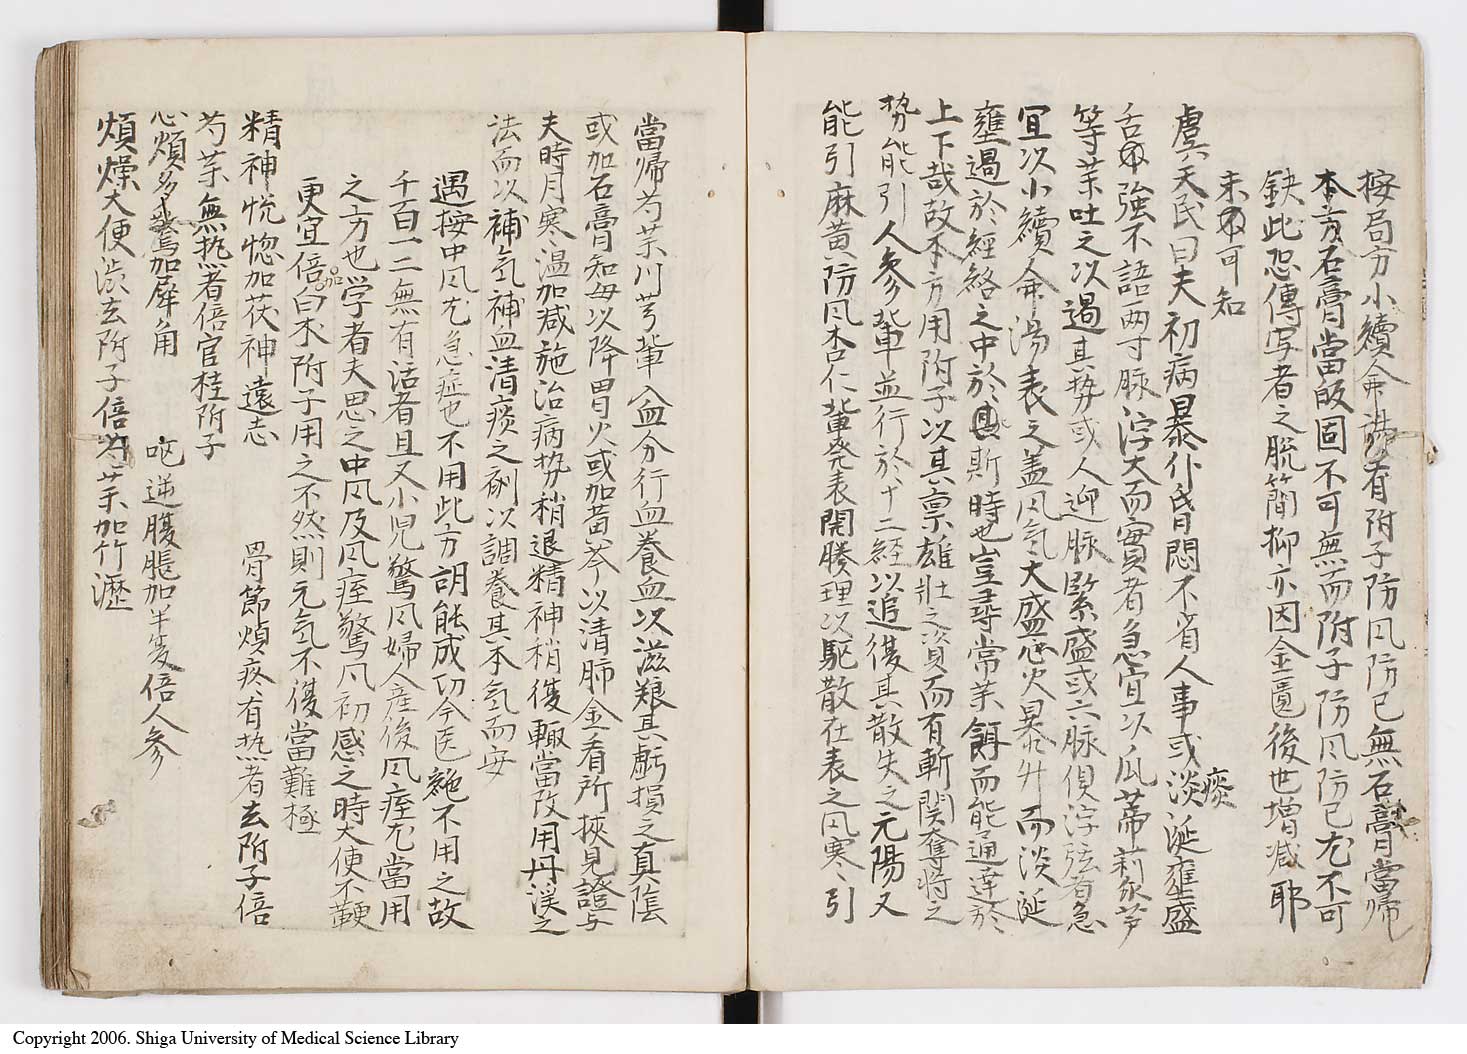 按局方小續命湯有附子防风防已無石膏當帰
本方石膏當皈固不可無而附子防风防已尤不可
缺此恐傳写者之脱簡抑亦因金匱後世增减耶
未可知
虞天民曰夫初病暴仆昏悶不省人事或淡涎壅盛
痰
舌強不語两寸脉浮大而實者急宜以瓜蒂藜芦
等茱吐之以遏其势或人迎脉緊盛或六脉俱浮弦者急
宜以小續命湯表之盖风气大盛心火暴升而淡涎
壅遏於經絡之中於斯時也豈尋常茱餌而能通達於
上下哉故本方用附子以其禀雄壮之資而有斬関奪将之
势能引人參軰並行於十二經以追復其散失之元陽又
能引麻黄防风杏仁軰発表開腠理以駈散在表之风寒引
當帰芍茱川芎軰入血分行血養血以滋粮其虧損之真陰
或加石膏知母以降胃火或加黄芩以清肺金看所挾見證与
夫時月寒温加减施治病势稍退精神稍復輙當改用丹溪之
法而以補气補血清痰之剤以調養其本气而安
遇按中风尤急症也不用此方胡能成功今医絶不用之故
千百一二無有活者且又小児驚风婦人産後风痓尤當用
之方也学者夫思之中风及风痓驚风初感之時大便不鞕
更宜倍加白朮附子用之不然則元气不復當難極
精神恍惚加茯神遠志　骨節煩疼有热者去附子倍
芍茱無热者倍官桂附子
心煩多驚加犀角　呕逆腹脹加半夏倍人參
煩燥大便渋去附子倍芍茱加竹瀝
Copyright 2006. Shiga University of Medical Science Library